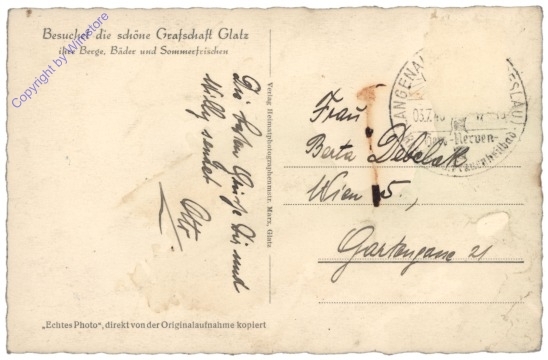 Besuchet die schöne Grafschaft Glatz
ihre Berge, Bäder und Sommerfrischen
Die besten Grüße Dir und
Willy sendet
Otti
Verlag Heimatphotographenmstr. Marx, Glatz
Frau
Berta Debelak
Wien 15.,
Gartengasse 21
LANGENAU
BRESLAU
03.7.40
Nerven-
Frauenheilbad
„Echtes Photo“, direkt von der Originalaufnahme kopiert
Copyright by Winstore